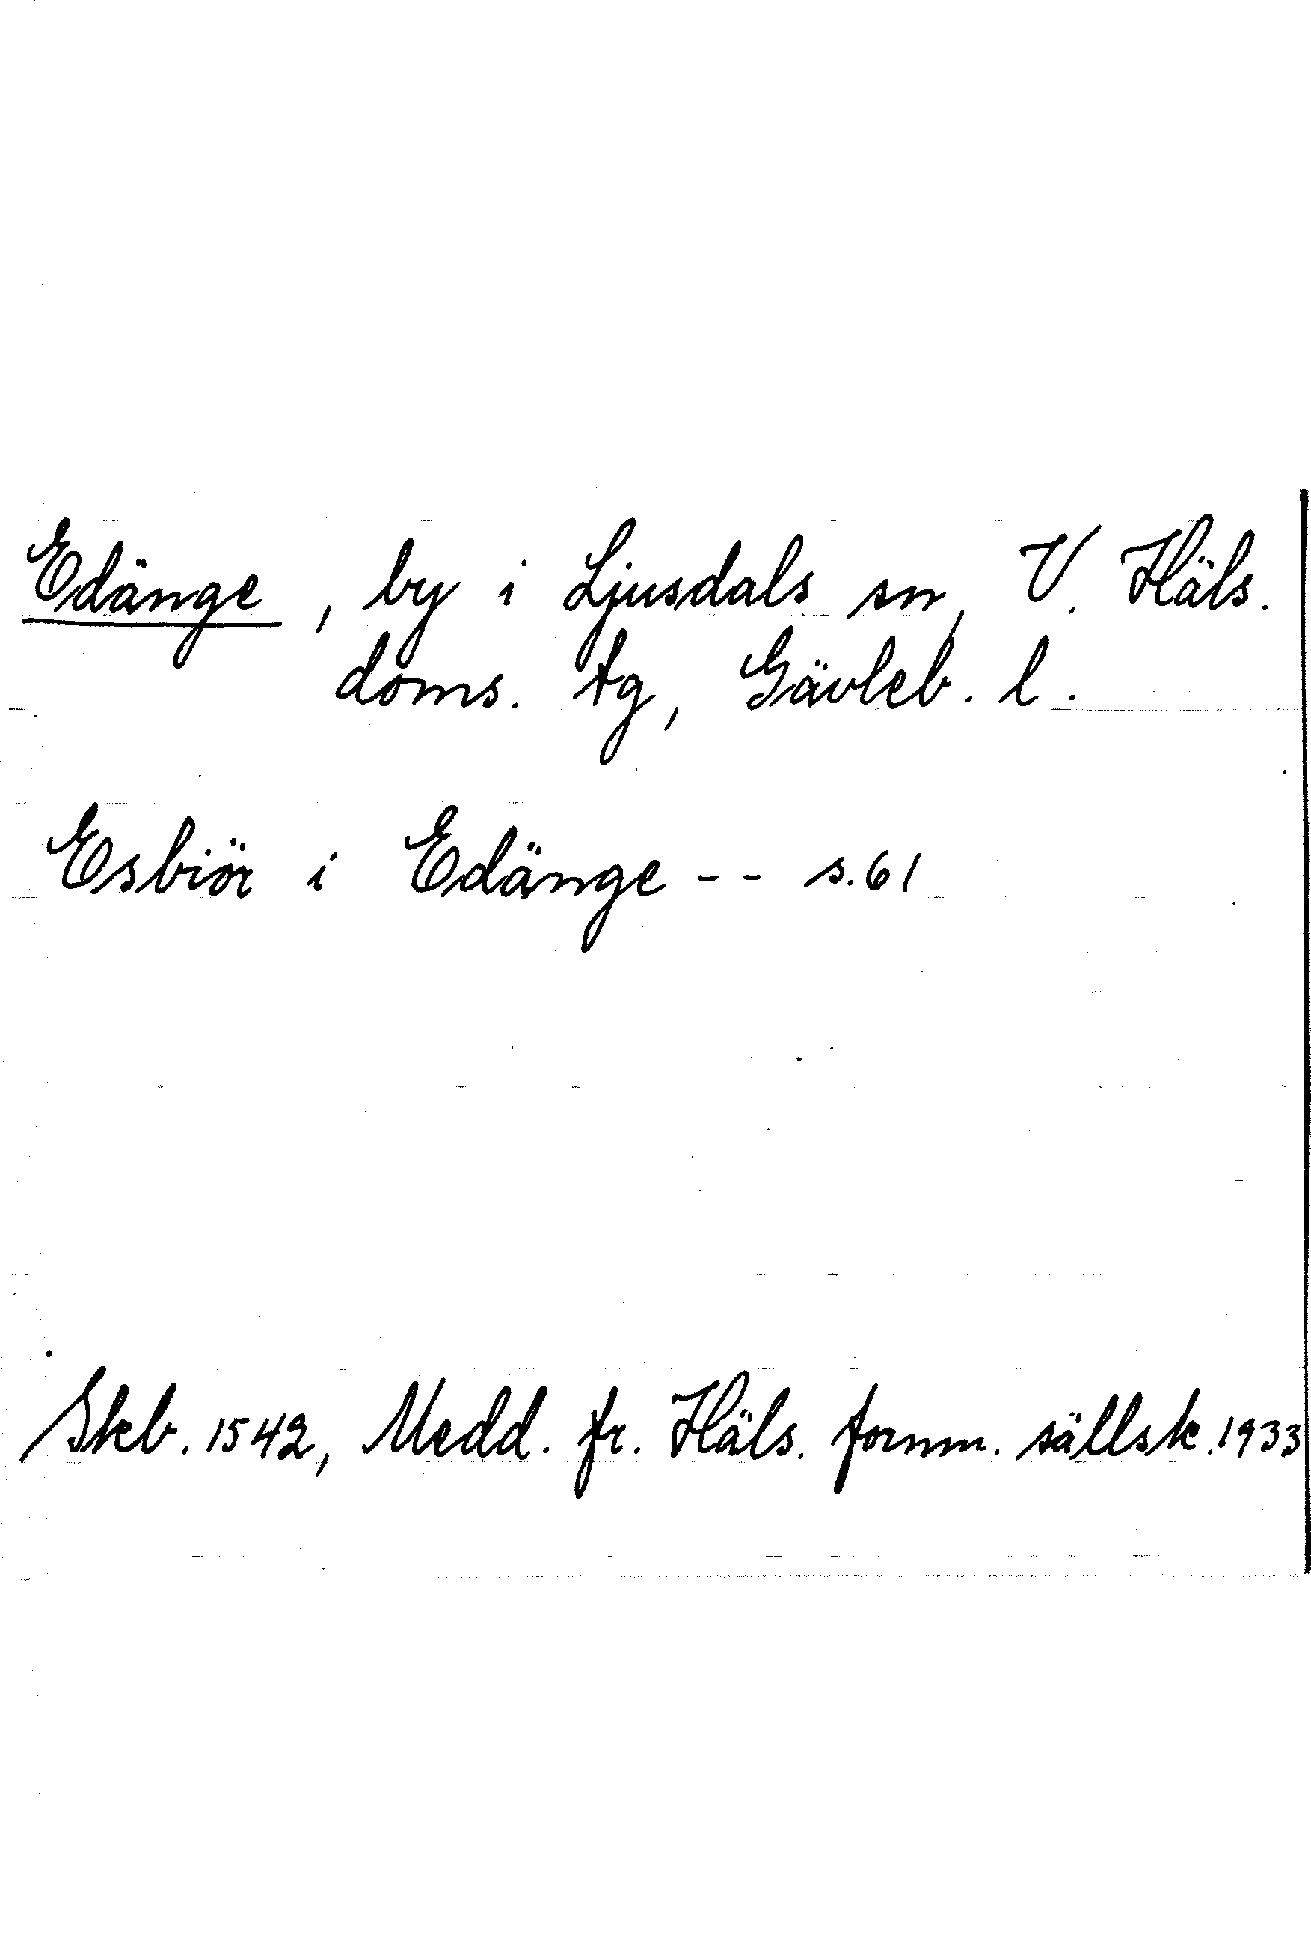 Edänge, by i Ljusdals sn, V. Häls.
doms. tg, Gävleb. l.
Esbiör i Edänge -- s.61
Skb. 1542, Medd. fr. Häls. fornm. sällsk. 1933